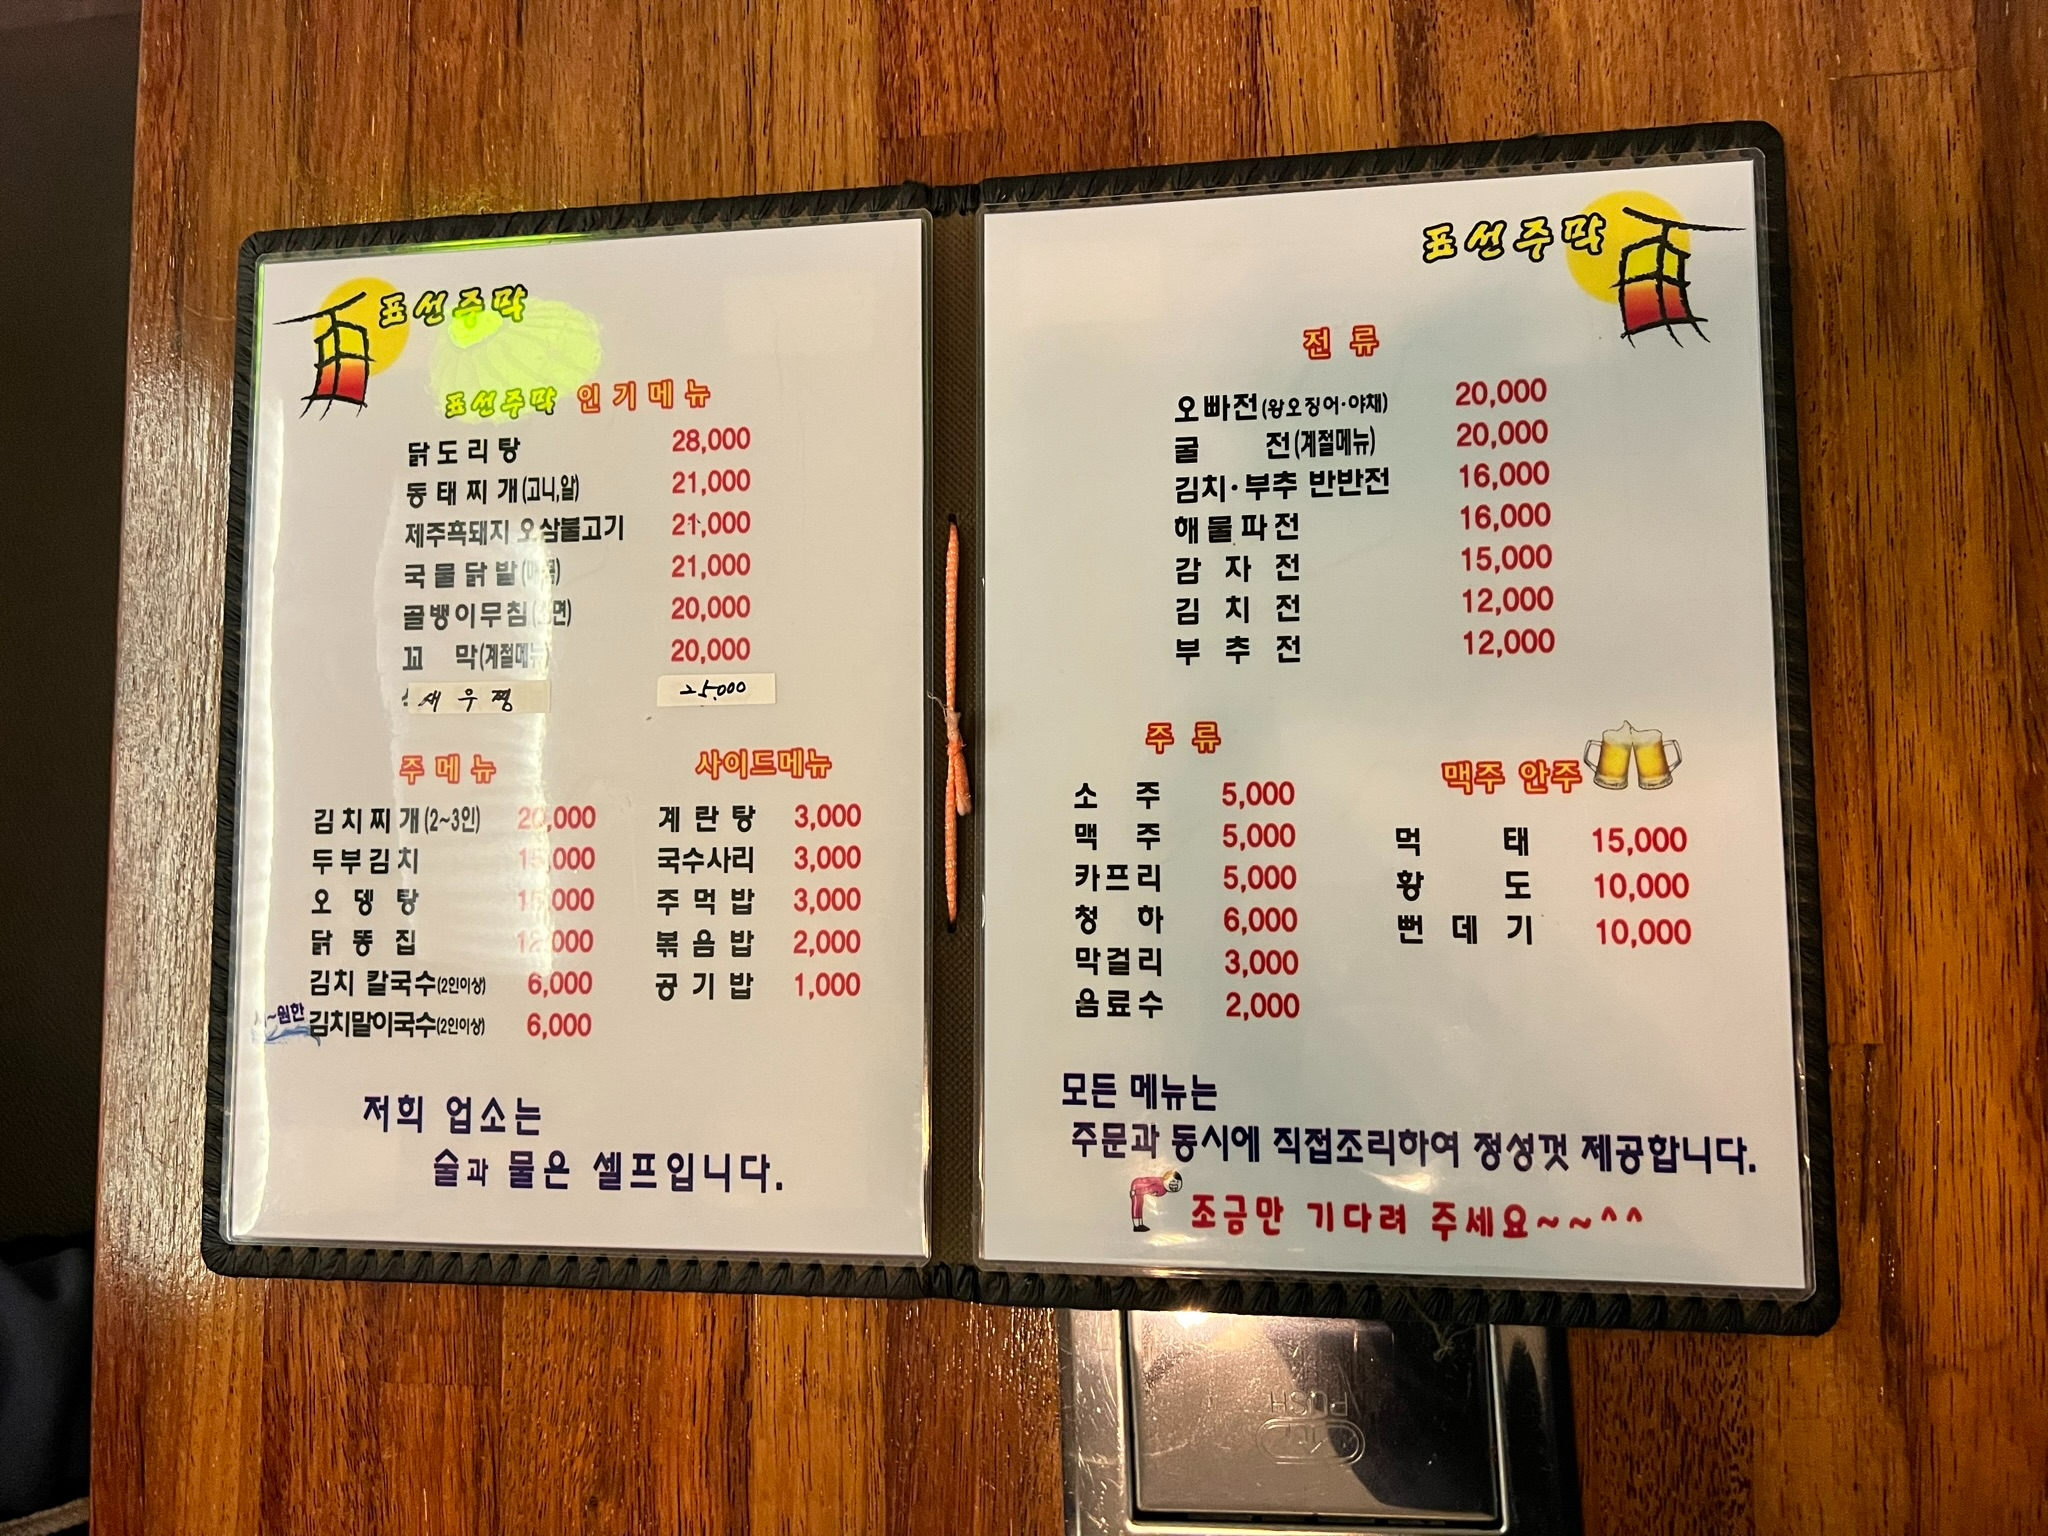 표선주막
표선주막 인기메뉴
닭도리탕 28,000
동태찌개(고니,알) 21,000
제주흑돼지 오삼불고기 21,000
국물닭발 21,000
골뱅이무침 20,000
꼬 막(계절메뉴) 20,000
새우찜 25,000
주메뉴
김치찌개(2~3인) 20,000
두부김치 15,000
오뎅탕 15,000
닭똥집
김치 칼국수(2인이상) 6,000
~원한 김치말이국수(2인이상) 6,000
사이드메뉴
계란탕 3,000
국수사리 3,000
주먹밥 3,000
볶음밥 2,000
공기밥 1,000
저희 업소는
술과 물은 셀프입니다.
표선주막
전류
오빠전(왕오징어·야채) 20,000
굴 전(계절메뉴) 20,000
김치·부추 반반전 16,000
해물파전 16,000
감자전 15,000
김치전 12,000
부추전 12,000
주류
소주 5,000
맥주 5,000
카프리 5,000
청하 6,000
막걸리 3,000
음료수 2,000
맥주 안주
먹태 15,000
황도 10,000
뻔데기 10,000
모든 메뉴는
주문과 동시에 직접조리하여 정성껏 제공합니다.
조금만 기다려 주세요~~^^
PUSH